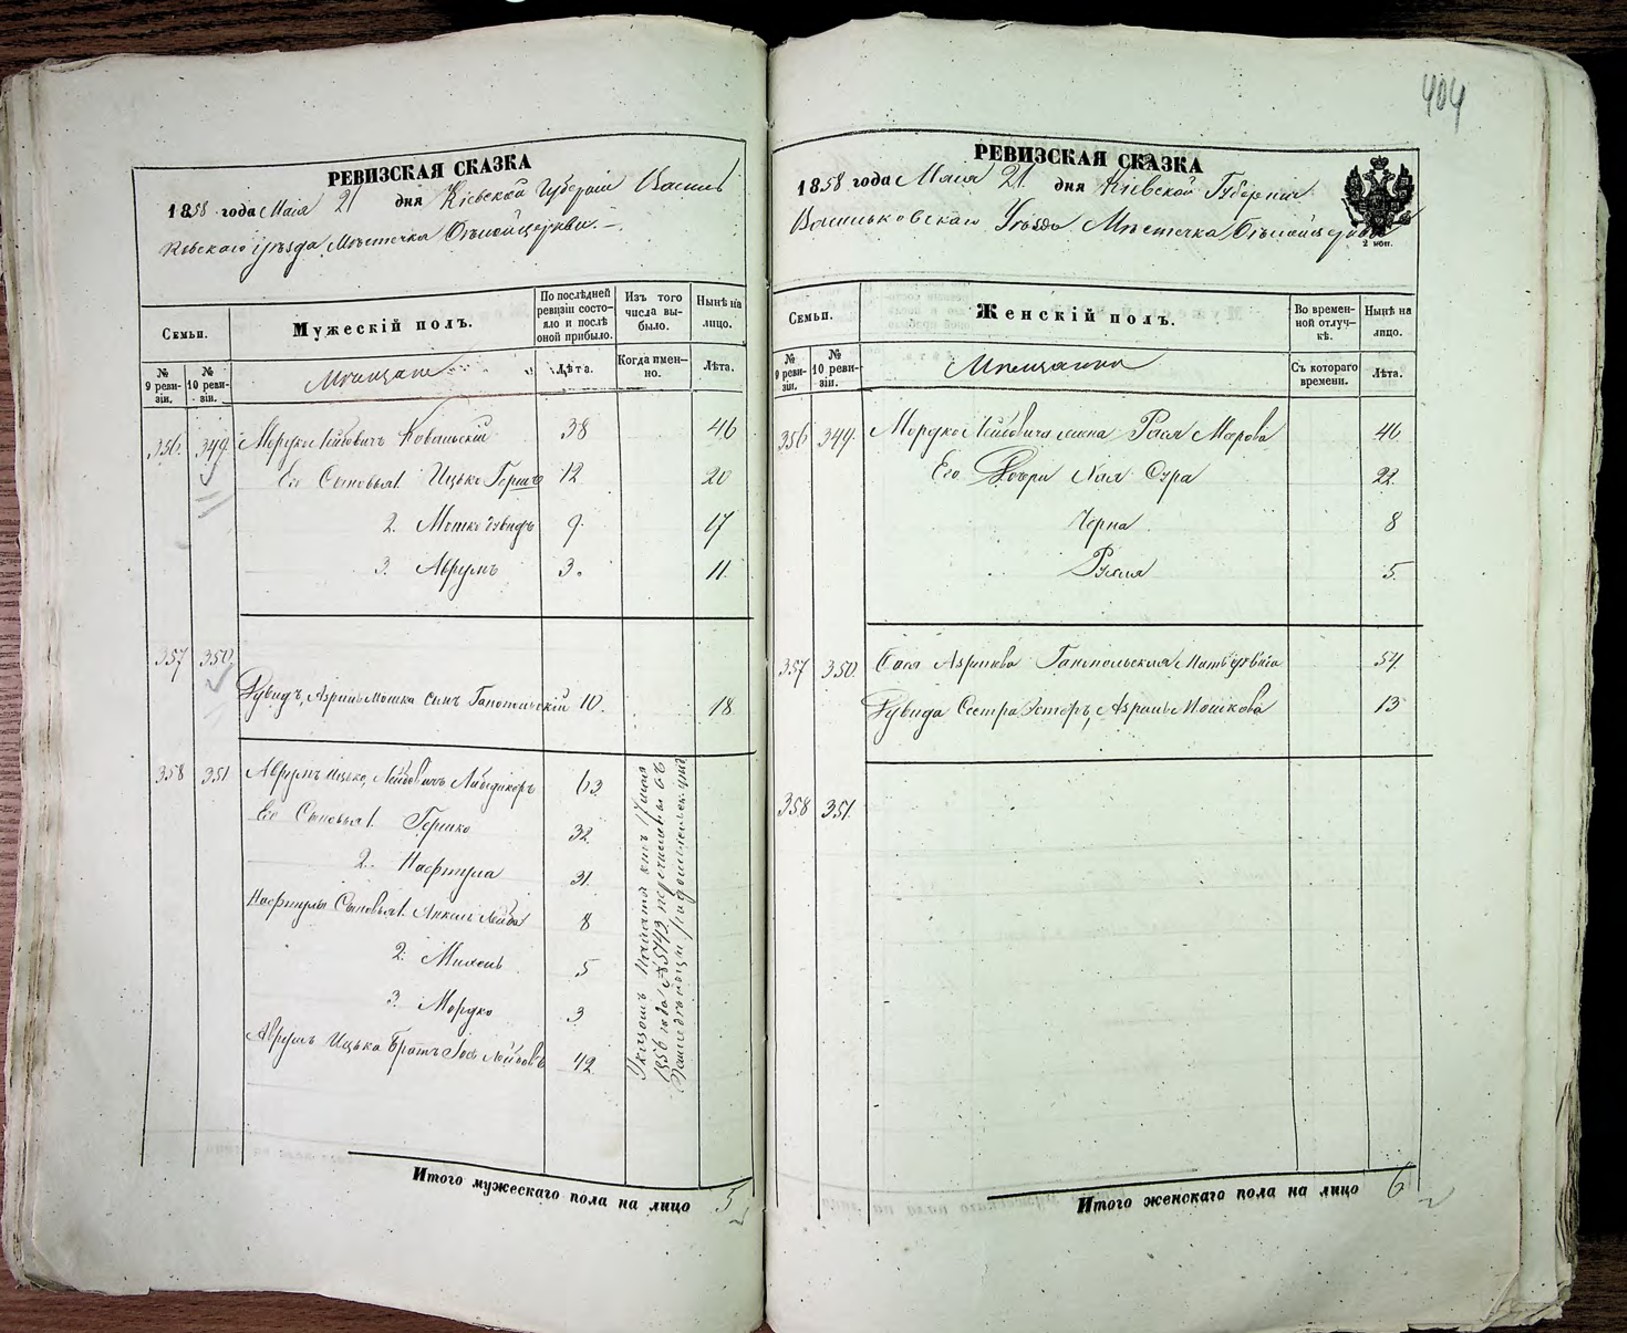 404
РЕВИЗСКАЯ СКАЗКА
1858 года Маія 21 дня Кіевской Губерніи Василь
ковскаго уѣзда Мѣстечка Бѣлойцеркви.
Семьи.
Мужескій полъ.
По послѣдней ревизіи состояло и послѣ оной прибыло.
Изъ того числа выбыло.
Нынѣ на лицо.
№ 9 ревизіи.
№ 10 ревизіи.
Мѣщане
Лѣта.
Когда именно.
Лѣта.
356. 349. Мордко Лейбовичъ Ковальскій 38 46
Его Сыновья 1. Ицько Гершъ 12 20
2. Мошко Дувидъ 9. 17
3. Аврумъ 3. 11.
357 350.
Дувидъ, Азриль Мошка сынъ 10. 18
358 351 Аврумъ Ицько, Лейбовичъ 63
Его Сыновья 1. Гершко 32
2. Нафтула 31.
Нафтулы Сыновья 1. Лейба 8
2. Михель 5
3. Мордко 3
Аврумъ Ицька Братъ Іось Лейбовъ 42
Указомъ Палаты отъ 17 мая
1856 года №5743 перечислены въ
Итого мужескаго пола на лицо 5
РЕВИЗСКАЯ СКАЗКА
1858 года Маія 21. дня Кіевской Губерніи
Васильковскаго Уѣзда Мѣстечка Бѣлойцеркви
2 коп.
Семьи.
Женскій полъ.
Во временной отлучкѣ.
Нынѣ на лицо.
№ 9 ревизіи.
№ 10 ревизіи.
Мѣщанки
Съ котораго времени.
Лѣта.
356 349. Мордко Лейбовича жена Рася Маркова 46
Его Дочери Хая Сура 22
Черна 8
Рухля 5.
357 350. Бася Азрилева Мать Дувида 54
Дувида Сестра Эстеръ, Азриль Мошкова 13
358 351.
Итого женскаго пола на лицо 6